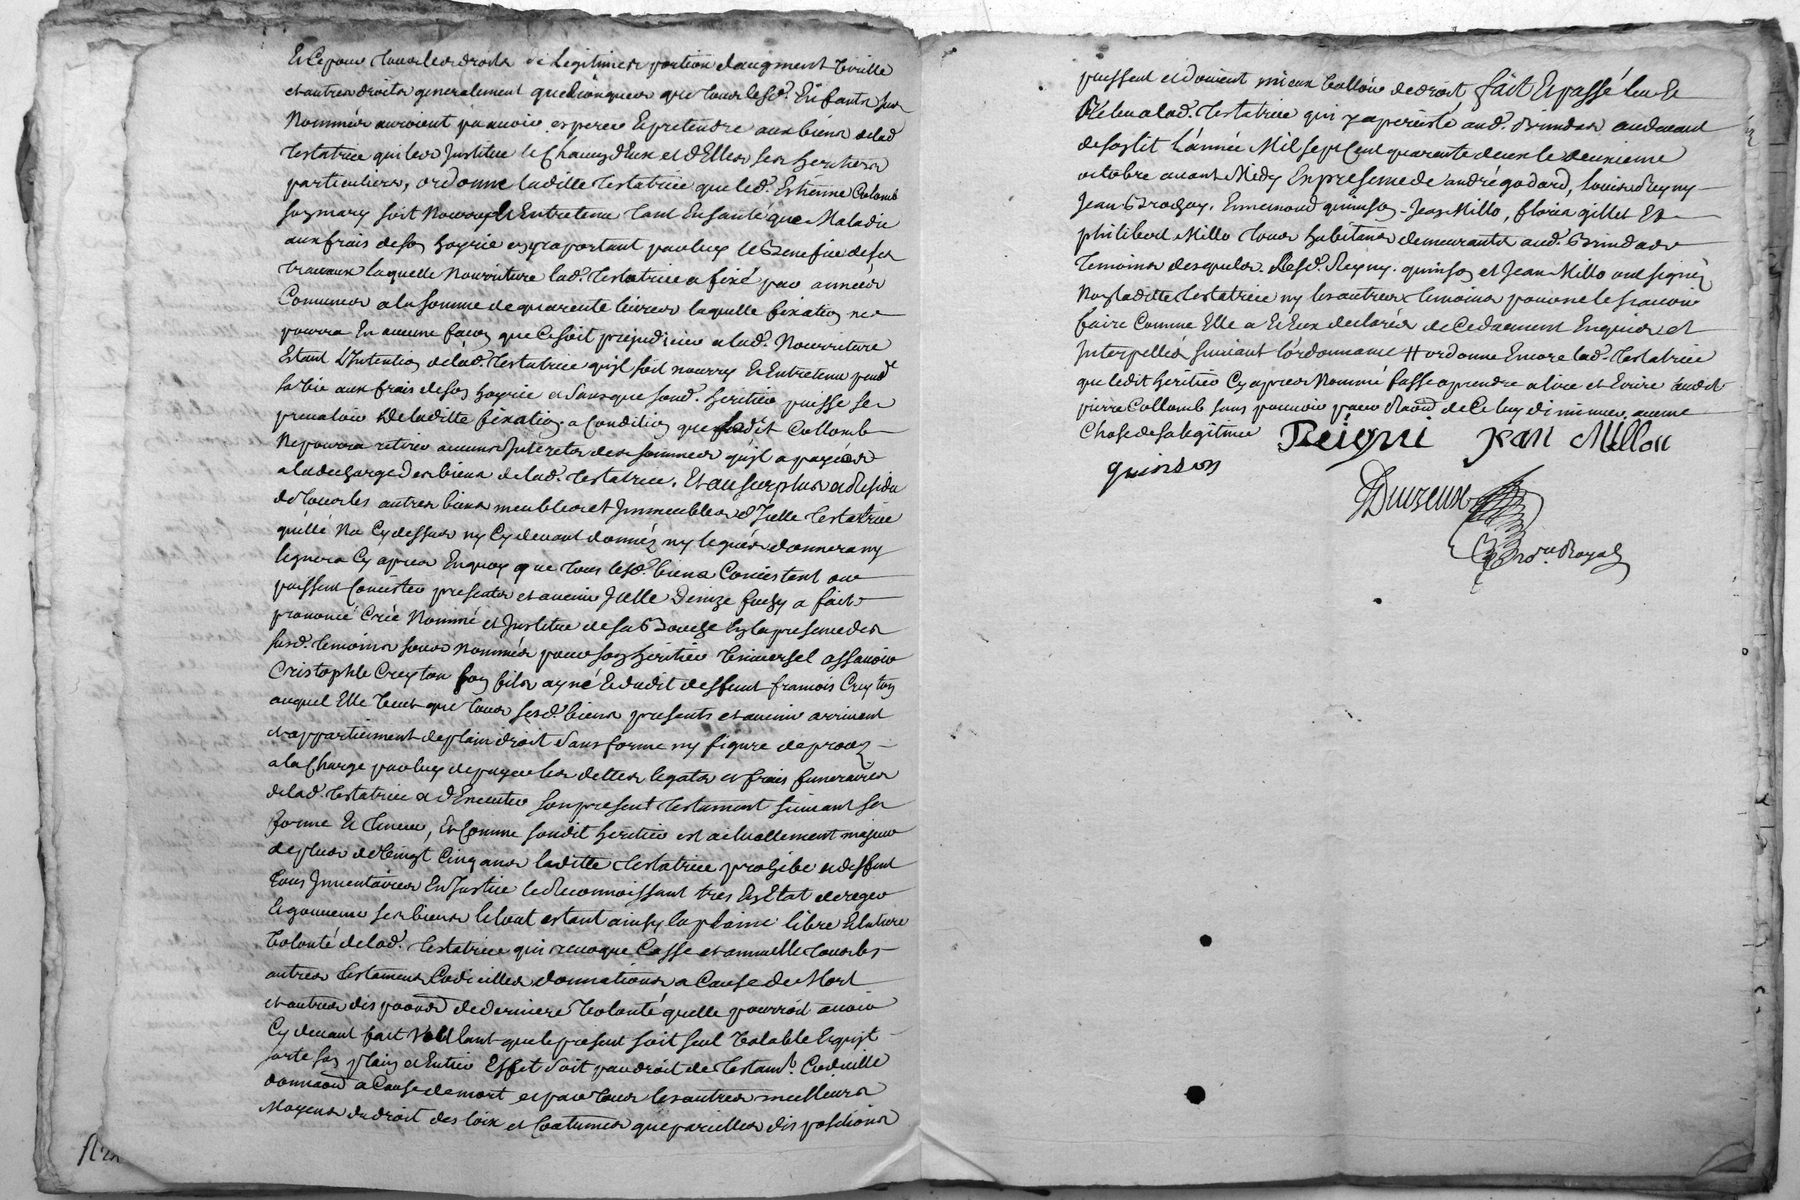 Et ce pour tous les droits de Legitimes portion daugment Virille
et autres droits generalement quelconques que tous lesd. Enfants sus
Nommés auroient pu avoir esperer Et pretendre aux biens de lad
Testatrice qui les Institue le Chacun d'Eux et d'Elles ses heritiers
particuliers, ordonne laditte Testatrice que led. Estienne Colomb
son mary soit Nourry Et Entretenu tant En santé que Maladie
aux frais de son hoyrie en y raportant par luy le Benefice de ses
travaux laquelle Nourriture lad. Testatrice a fixé par années
Comunes a la somme de quarente livres laquelle fixation ne
pourra En aucune facon que ce soit prejudicier a lad. Nourriture
Estant L'Intention de lad. Testatrice qu'il soit nourry Et Entretenu pendt
sa vie aux frais de son hoyrie et sans que sond. heritier puisse se
prevaloir De laditte fixation a Condition que ledit Collomb
Ne pourra retirer aucuns Interets des sommes qu'il a payées
a la decharge des biens de lad. Testatrice. Et au surplus et Residu
de tous les autres biens meubles et Immeubles d'Icelle Testatrice
qu'elle N'a Cy dessus ny Cy devant donnéz ny legués donnera ny
leguera Cy apres En quoy que tous lesd. biens Concistent ou
puissent Concister presents et avenir Icelle Denize fuchy a fait
prononcé Créé Nommé et Institue de sa Bouche En la presence des
susd. temoins sous nommés pour son heritier Universel assavoir
Cristophle Creyton son fils ayné Et dudit deffunt francois Creyton
auquel Elle Veut que tous sesd. biens presents et avenir arrivent
et appartiennent de plain droit sans forme ny figure de procez
a la Charge par luy de payer les dettes legats et frais funeraires
de lad. Testatrice et d'Executer son present Testament suivant sa
forme Et teneur, Et Comme sondit heritier est actuellement majeur
de plus de Vingt Cinq ans laditte Testatrice prohibe et deffend
tous Inventaires En Justice le Reconnoissant tres En Etat de regir
Et gouverner ses biens le tout estant ainsy la plaine libre Et entiere
Volonté de lad. Testatrice qui revoque Casse et annulle tous les
autres Testaments Codicilles donnations a Cause de Mort
et autres dispoond de derniere Volonté quelle pourroit avoir
Cy devant fait Voullant que le present soit seul Valable Et qu'il
sorte son plain et Entier Effet soit par droit de Testamt. Codicille
donnaon a Cause de mort et par tous les autres meilleurs
Moyens de droit des loix et Coutumes que pareilles dispositions
puissent et doivent mieux Valloir de droit fait Et passé leu Et
Releu a lad. Testatrice qui y a persisté aud. Brindas au devant
de son lit L'année Mil sept Cent quarente deux le deuxieme
octobre avant Midy En presence de andré godard, louis Reyny
Jean Brochay. Ennemond quinson. Jean Millo, floris gillet Et
philibert Millo tous habitans demeurants aud. Brindas
temoins desquels. Lesd. Reyny. quinson et Jean Millo ont signéz
Non laditte Testatrice ny les autres temoins pour ne le scavoir
faire Comme Elle a Et Eux declarés de Ce duement Enquis et
Interpellés suivant l'ordonnance # ordonne Encore lad. Testatrice
que ledit heritier Cy apres Nommé fasse aprendre a lire et Ecrire audit
pierre Collomb sans pouvoir pour Raond de Ce luy diminuer aucune
Chose de sa legitime Reigni Jean Millon
quinson
Duvreux
No.re Royal